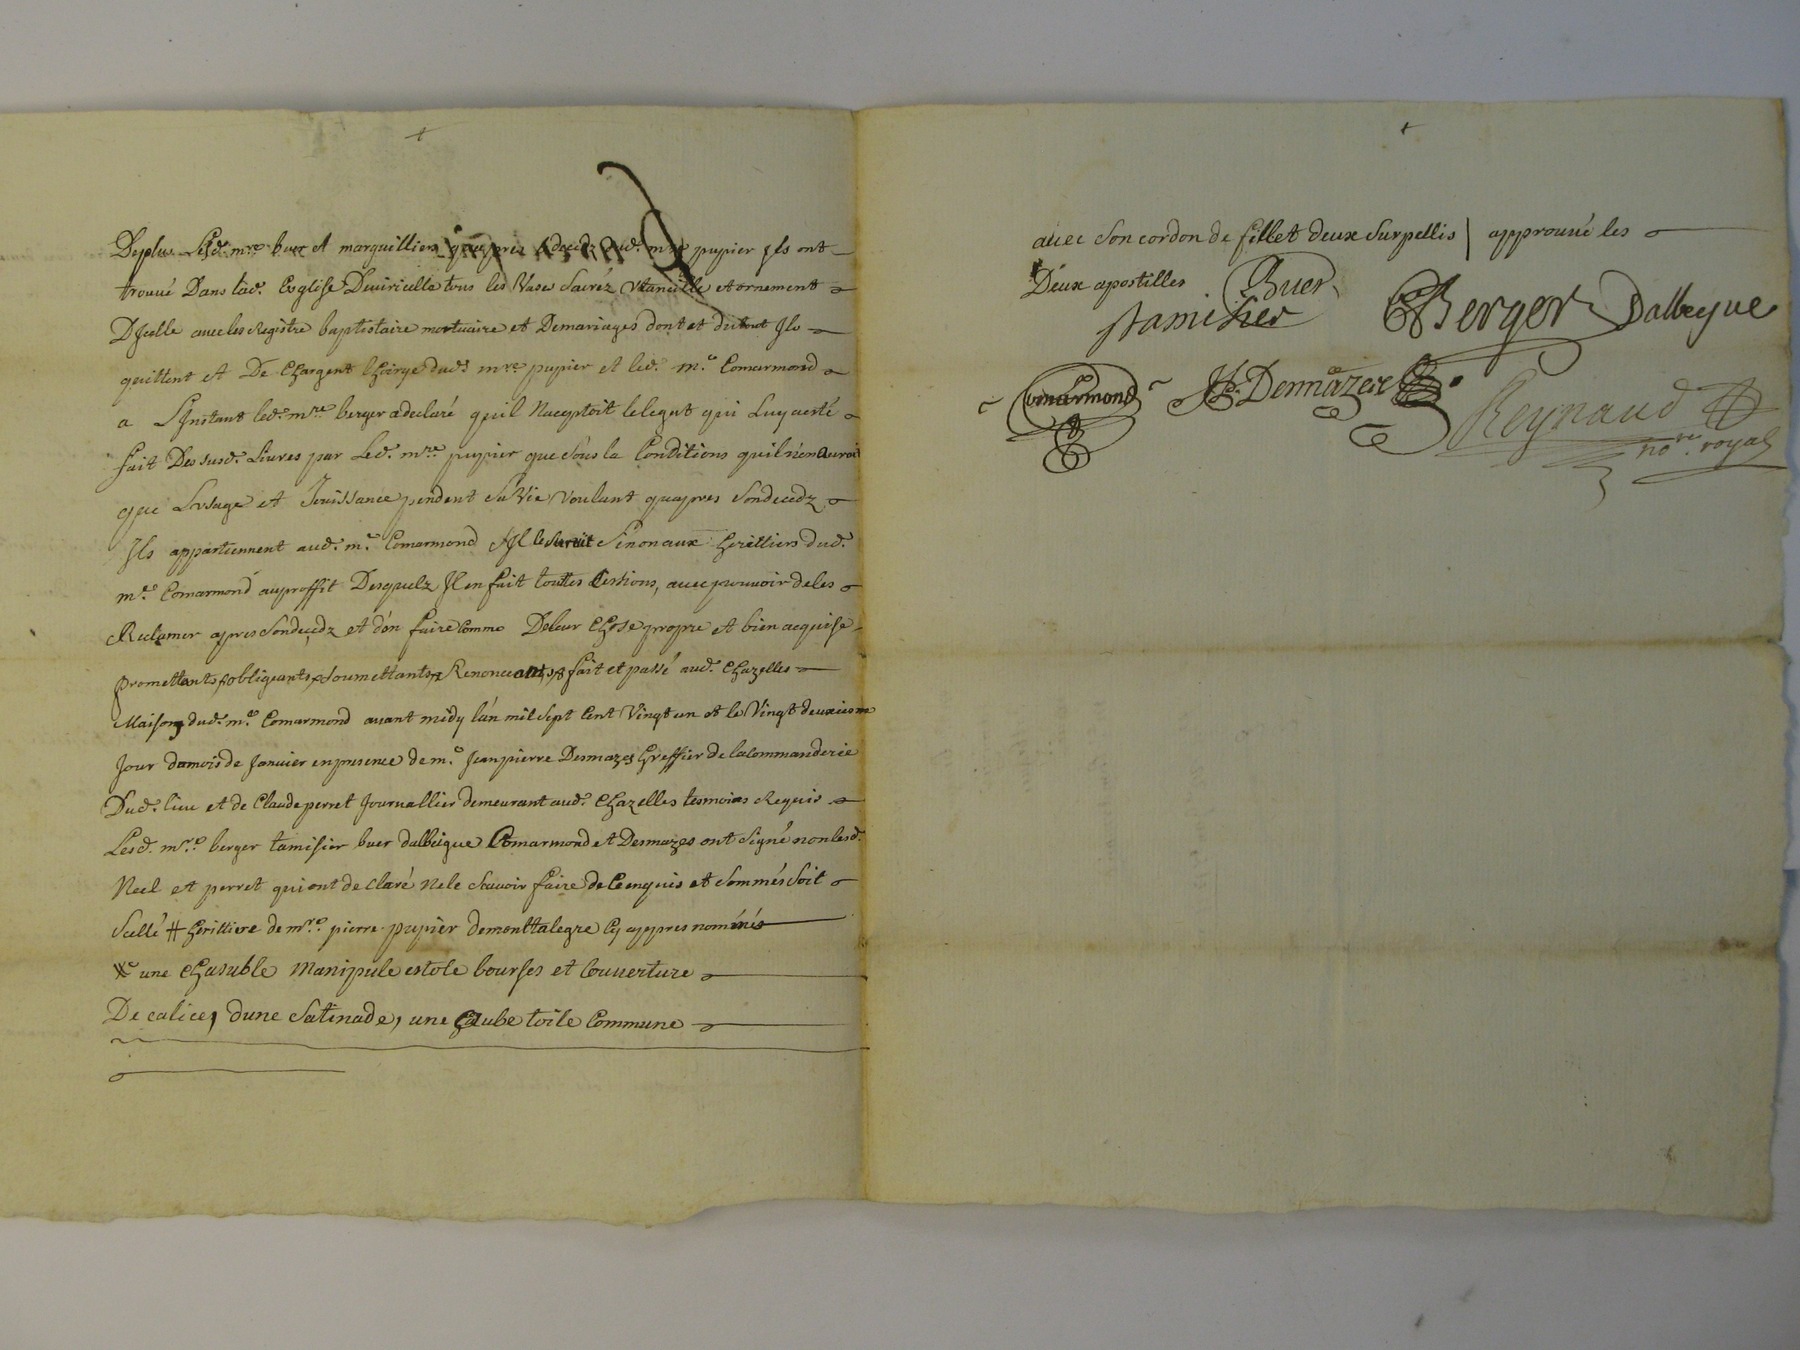 Deplus Lesd. mre. buer et marguilliers qu'apres decedz dud. mre pupier Ils ont
trouvé Dans lad. Esglise Deviricelle tous les Vase Sacréz Vtancille et ornement
DJcelle avec les Registre baptistaire mortuaire et Demariages dont et du tout Ilz
quittent et De Chargent lhoirye dud. mre pupier et led. me. Comarmond
a LJnstant led. mre berger a declaré quil Naceptoit le legat qui Luy aesté
fait Des susd. Livres par Led. mre pupier que sous la Conditions quil n'en auroit
que Lvsage et Jouissance pendent sa Vie Voulant quapres Son decedz
Ils appartiennent aud. me. Comarmond Sinon aux heritiers dud.
me. Comarmond au proffit Desquelz Il en fait touttes Cessions, avec pouvoir de les
Reclamer apres Son decedz et d'en faire Comme Deleur Chose propre et bien acquise
promettants & obligeants & Soumettants & Renonceants & fait et passé aud. Chazelles
Maison dud. me. Comarmond avant midy lan mil Sept Cent Vingt un et le Vingt deuxieme
Jour du mois de Janvier en presence de me. Jean pierre Desmazes Greffier de la Commanderie
Dud. lieu et de Claude perret Journallier demeurant aud. Chazelles tesmoins Requis
Lesd. mres. berger tamisier buer dalbeigue Comarmond et Desmazes ont Signé non lesd.
Neel et perret qui ont de Claré Nele Scavoir faire de Ce enquis et Sommés Soit
Scellé # heritiere de mre. pierre pupier demonttalegre Cy appres nommés
une Chasuble Manipule estole bourses et Couverture
De calice, dune Satinade, une aube toile Commune
avec Son cordon de fillet deux Surpellis | approuvé les
Deux apostilles Buer
tamisier Berger Dalbeigue
Comarmond Desmazes
Reynaud
nore. royal